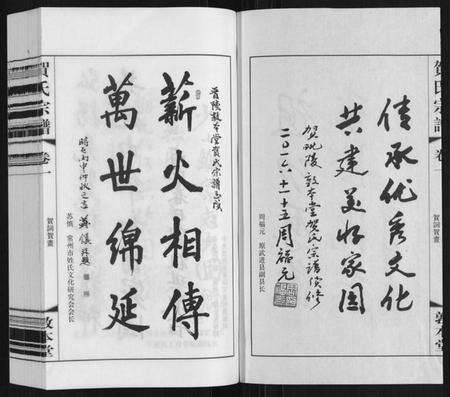 傳承优秀文化
共建美好家園
賀毗陵敦本堂賀氏宗譜續修
二〇一六十一十五周福元
周福元 原武进县副县长
賀氏宗譜
卷一
賀詞賀畫
敦本堂
晋陵敦本堂賀氏宗譜告成
薪火相傳
萬世綿延
時在丙申仲秋之吉
苏慎 常州市姓氏文化研究会会长
賀氏宗譜
卷一
賀詞賀畫
敦本堂